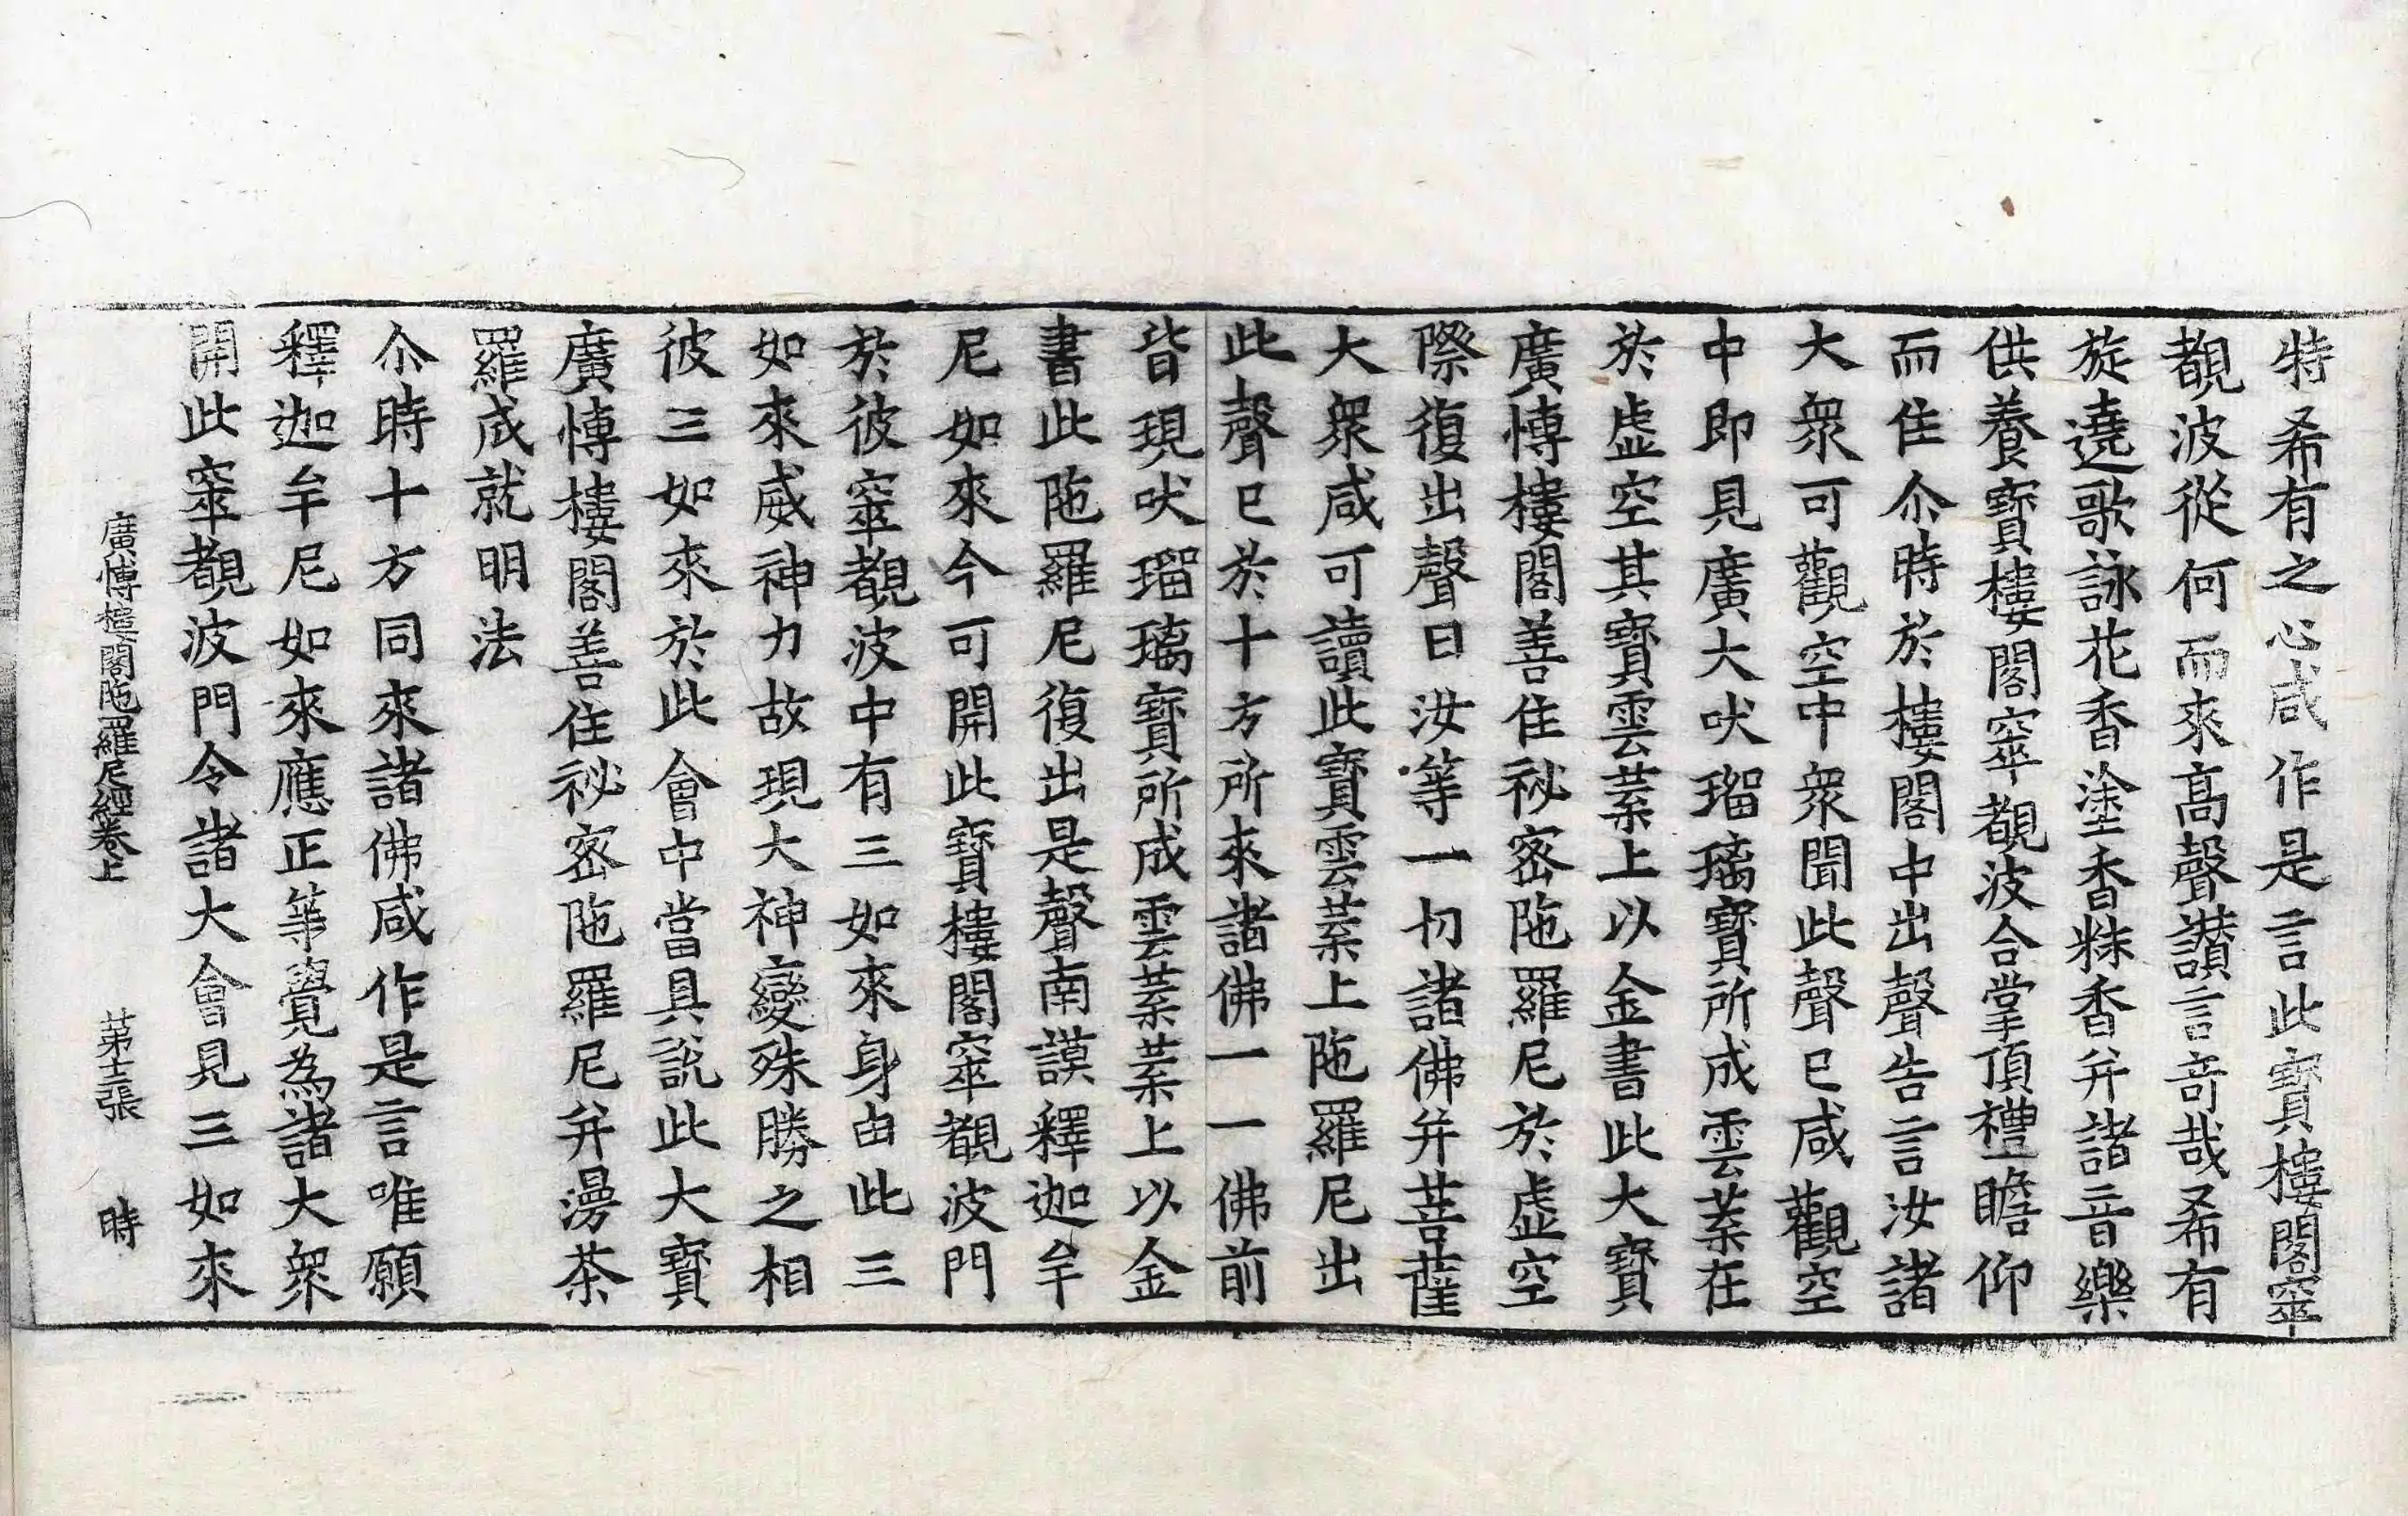 特希有之心咸作是言此寶樓閣窣
覩波從何而來高聲讃言竒哉希有
旋遶歌詠花香塗香粖香并諸音樂
供養寶樓閣窣覩波合掌頂禮瞻仰
而住尒時於樓閣中出聲告言汝諸
大衆可觀空中衆聞此聲已咸觀空
中即見廣大吠瑠璃寶所成雲葉在
於虛空其寶雲葉上以金書此大寶
廣愽樓閣善住祕密陁羅尼於虛空
際復出聲曰汝等一切諸佛并菩薩
大衆咸可讀此寶雲葉上陁羅尼出
此聲已於十方所來諸佛一一佛前
皆現吠瑠璃寶所成雲葉葉上以金
書此陁羅尼復出是聲南謨釋迦牟
尼如來今可開此寶樓閣窣覩波門
於彼窣覩波中有三如來身由此三
如來威神力故現大神變殊勝之相
彼三如來於此會中當具說此大寶
廣愽樓閣善住祕密陁羅尼并漫荼
羅成就明法
尒時十方同來諸佛咸作是言唯願
釋迦牟尼如來應正等覺為諸大衆
開此窣覩波門令諸大會見三如來
廣愽樓閣陁羅尼經卷上 苐十二張 時